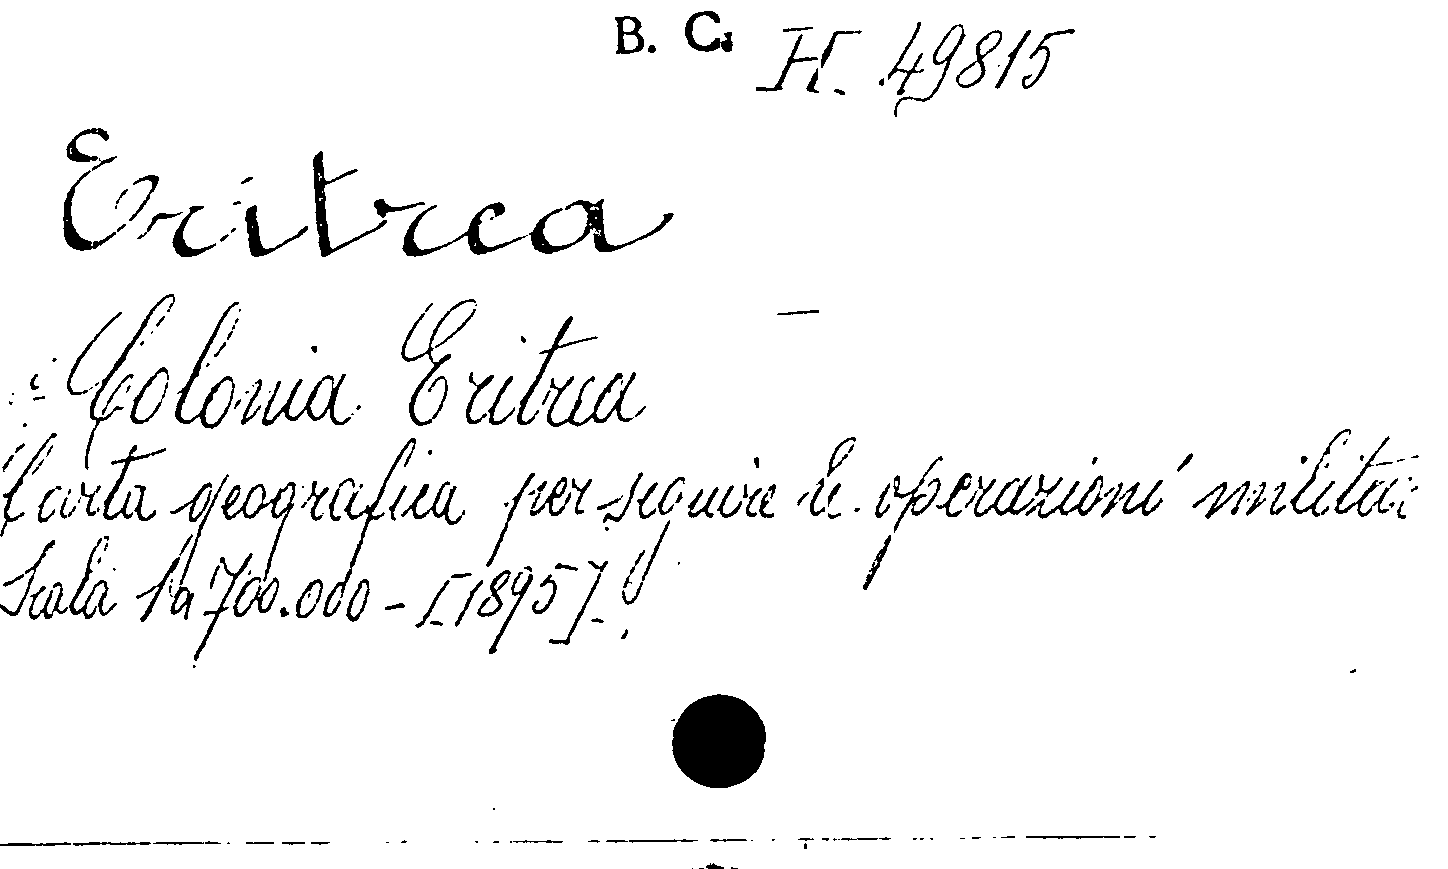 B. C. H. 49815
Eritrea
Colonia Eritrea
Carta geografica per seguire le operazioni milita:
Scala 1 a 700.000 - [1895].